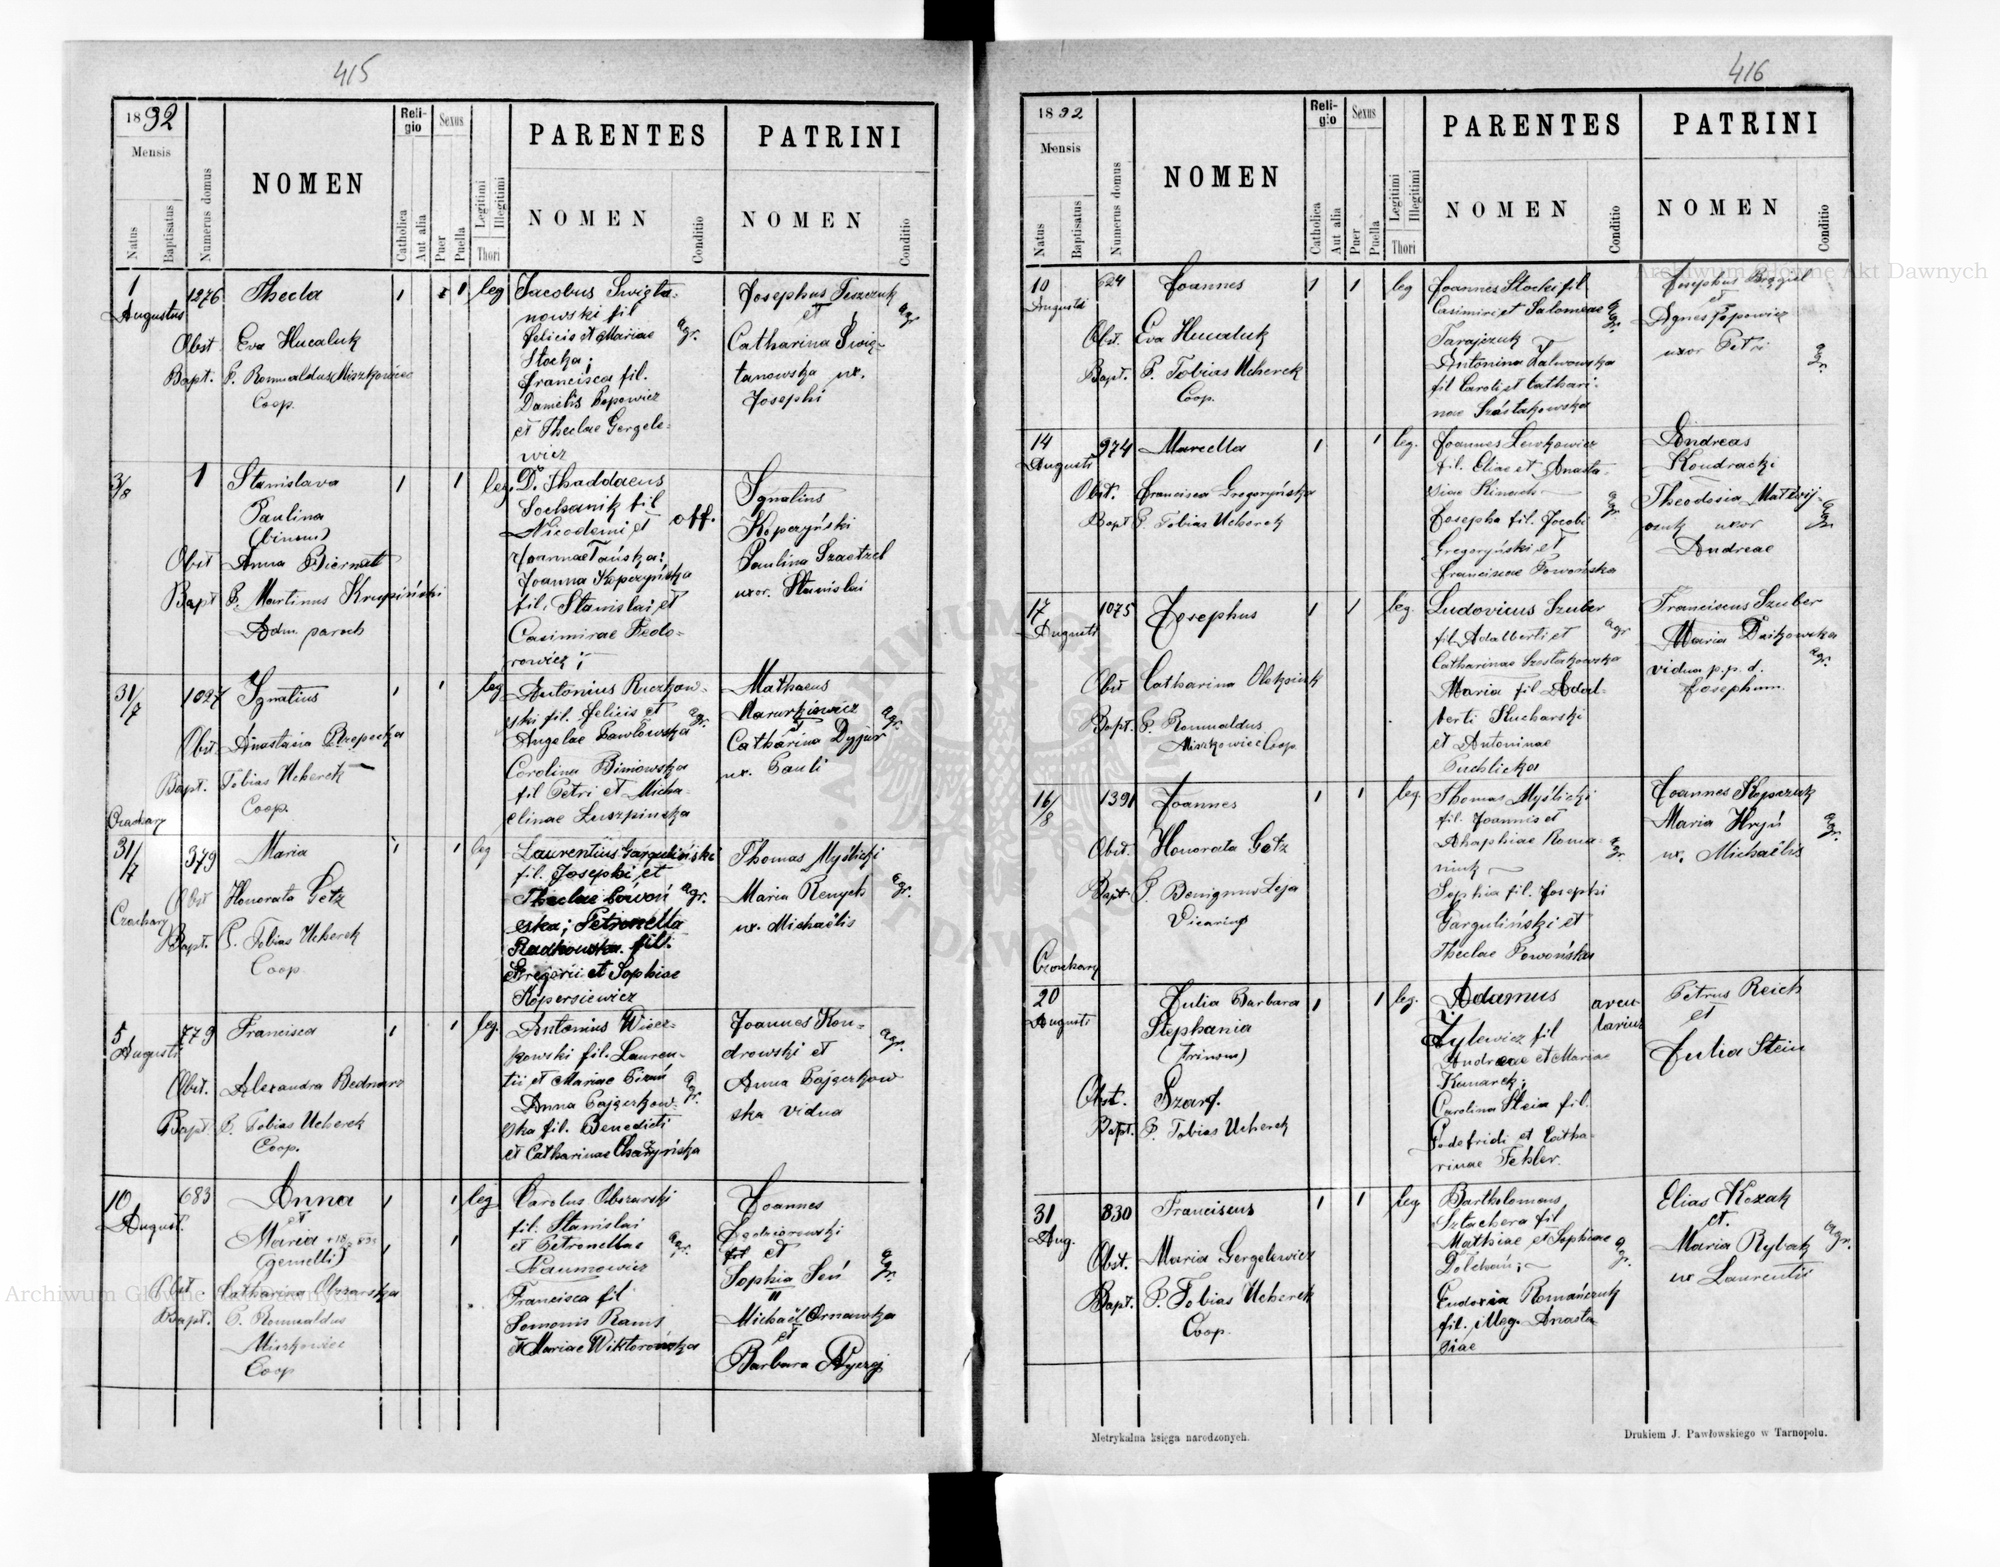 415
1892
Mensis
Natus
Baptisatus
Numerus domus
NOMEN
Religio
Catholica
Aut alia
Sexus
Puer
Puella
Legitimi
Illegitimi
Thori
PARENTES
NOMEN
Conditio
PATRINI
NOMEN
Conditio
1 Augustus
1276
Thecla
1
1
leg
Obst Eva Hucaluk
Bapt. P. Romualdus Miszkowiec
Coop.
Jacobus Swięta-
nowski fil
Felicis et Mariae
Stocka;
Francisca fil.
Danielis Popowicz
et Theclae Gergele-
wicz
agr.
Josephus Teszczuk
et
Catharina Świę-
tanowska ux.
Josephi
agr
3/8
1
Stanislava
Paulina
(binom)
1
1
leg.
Obst Anna Biernat
Bapt P. Martinus Krupiński
Adm. paroch
D. Thaddaeus
Sochanik fil
Nicodemi et
Joannae Tańska;
Joanna Kopczyńska
fil. Stanislai et
Casimirae Teodo-
rowicz;
off.
Ignatius
Kopczyński
Paulina
uxor. Stanislai
31/7
1027
Ignatius
1
1
leg
Obst. Anastasia Rzepecka
Bapt. Tobias Ucherek
Coop.
Antonius Ruczkow-
ski fil. Felicis et
Angelae Pawłowska
Carolina Biniowska
fil Petri et Micha-
elinae Łuszpinska
agr.
Mathaeus
Mazurkiewicz
et
Catharina Dyjur
ux. Pauli
agr.
31/7
379
Maria
1
1
leg
Obst Honorata Getz
Bapt. P. Tobias Ucherek
Coop.
Laurentius Garguliński
fil. Josephi et
Theclae
eska; Petronella
Radkowska fil.
Gregorii et Sophiae
Kopersiewicz
agr.
Thomas Myślicki
Maria Renych
ux. Michaëlis
agr.
5 Augusti
779
Francisca
1
1
leg.
Obst. Alexandra Bednarz
Bapt. P. Tobias Ucherek
Coop.
Antonius Wier-
kowski fil. Lauren-
tii et Mariae
Anna Pajączkow-
ska fil. Benedicti
et Catharinae Charzyńska
agr.
Joannes Kon-
drowski et
Anna Pajączkow
ska vidua
agr.
10 August.
683
Anna
et
Maria
(gemelli)
1
1
1
1
leg
Obst. Catharina Obzarska
Bapt. P. Romualdus
Miszkowiec
Coop
Carolus Obzarski
fil. Stanislai
et Petronellae
Naumowicz
Francisca fil
Semonis Rams
et Mariae Wiktorowska
agr.
Joannes
et
Sophia Seń
"
Michaël Ornawka
et
Barbara
agr.
416
1892
Mensis
Natus
Baptisatus
Numerus domus
NOMEN
Religio
Catholica
Aut alia
Sexus
Puer
Puella
Legitimi
Illegitimi
Thori
PARENTES
NOMEN
Conditio
PATRINI
NOMEN
Conditio
10 Augusti
624
Joannes
1
1
leg
Obst. Eva Hucaluk
Bapt. P. Tobias Ucherek
Coop.
Joannes Stocki fil
Casimiri et Salomeae
Tarajczuk
Antonina Zalwowska
fil Caroli et Cathari-
nae Szóstakowska
agr.
Josephus
et
Agnes Popowicz
uxor Petri
agr.
14 Augusti
974
Marcella
1
1
leg.
Obst. Francisca Gregoryńska
Bapt P. Tobias Ucherek
Joannes Lewkowicz
fil. Eliae et Anasta-
siae
Josepha fil. Jacobi
Gregoryński et
Franciscae Powońska
agr.
Andreas
Kondracki
Theodosia Matwij-
czuk uxor
Andreae
agr.
17 Augusti
1075
Josephus
1
1
leg.
Obst Catharina Oleksiuk
Bapt. P. Romualdus
Miszkowiec Coop.
Ludovicus Szuber
fil. Adalberti et
Catharinae Szostakowska
Maria fil Adal-
berti Kucharski
et Antoninae
Puchlicka
agr
Franciscus Szuber
Maria Dzikowska
vidua p.p.d.
Josephum
agr.
16/8
1391
Joannes
1
1
leg
Obst. Honorata Getz
Bapt P. Benignus Leja
Vicarius
Thomas Myślicki
fil. Joannis et
Ahaphiae Roma-
niuk
Sophia fil. Josephi
Garguliński et
Theclae Powońska
agr.
Joannes Kopczuk
Maria Hryń
ux. Michaëlis
agr.
20 Augusti
Julia Barbara
Stephania
(trinom)
1
1
leg.
Obst. Szarf.
Bapt. P. Tobias Ucherek
Adamus
Żylewicz fil
Andreae et Mariae
Kunarek;
Carolina Stein fil.
Godefridi et Catha-
rinae Fehler.
arcu
larius
Petrus Reich
et
Julia Stein
31 Aug.
830
Franciscus
1
1
leg
Obst. Maria Gergelewicz
Bapt. P. Tobias Ucherek
Coop.
Bartholomeus
Sztachera fil
Mathiae et Sophiae
Eudoxia Romańczuk
fil. illeg. Anasta
siae
agr.
Elias Kozak
et.
Maria Rybak
ux Laurentii
agr.
Metrykalna księga narodzonych.
Drukiem J. Pawłowskiego w Tarnopolu.
Archiwum Główne Akt Dawnych
Archiwum Główne Akt Dawnych
ARCHIWUM GŁÓWNE AKT DAWNYCH